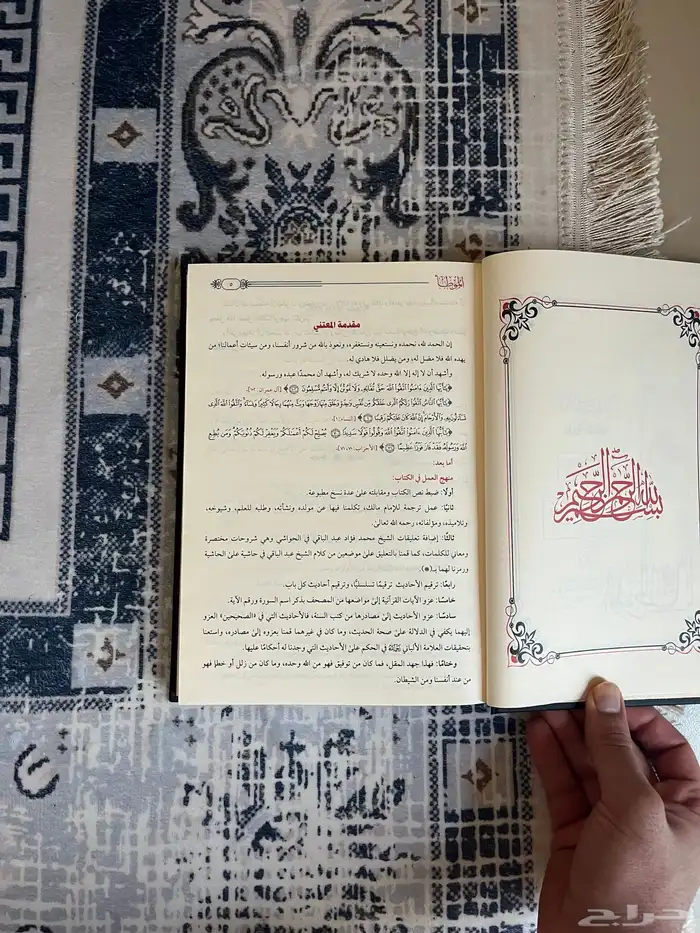 بسم الله الرحمن الرحيم
الموطأ
٥
مقدمة المعتني
إن الحمد لله، نحمده ونستعينه ونستغفره، ونعوذ بالله من شرور أنفسنا، ومن سيئات أعمالنا؛ من
يهده الله فلا مضل له، ومن يضلل فلا هادي له.
وأشهد أن لا إله إلا الله وحده لا شريك له، وأشهد أن محمدًا عبده ورسوله.
﴿يَٰٓأَيُّهَا ٱلَّذِينَ ءَامَنُوا۟ ٱتَّقُوا۟ ٱللَّهَ حَقَّ تُقَاتِهِۦ وَلَا تَمُوتُنَّ إِلَّا وَأَنتُم مُّسْلِمُونَ ١٠٢﴾ [آل عمران: ١٠٢].
﴿يَٰٓأَيُّهَا ٱلنَّاسُ ٱتَّقُوا۟ رَبَّكُمُ ٱلَّذِى خَلَقَكُم مِّن نَّفْسٍ وَٰحِدَةٍ وَخَلَقَ مِنْهَا زَوْجَهَا وَبَثَّ مِنْهُمَا رِجَالًا كَثِيرًا وَنِسَآءً وَٱتَّقُوا۟ ٱللَّهَ ٱلَّذِى
تَسَآءَلُونَ بِهِۦ وَٱلْأَرْحَامَ إِنَّ ٱللَّهَ كَانَ عَلَيْكُمْ رَقِيبًا ١﴾ [النساء: ١].
﴿يَٰٓأَيُّهَا ٱلَّذِينَ ءَامَنُوا۟ ٱتَّقُوا۟ ٱللَّهَ وَقُولُوا۟ قَوْلًا سَدِيدًا ٧٠ يُصْلِحْ لَكُمْ أَعْمَٰلَكُمْ وَيَغْفِرْ لَكُمْ ذُنُوبَكُمْ وَمَن يُطِعِ
ٱللَّهَ وَرَسُولَهُۥ فَقَدْ فَازَ فَوْزًا عَظِيمًا ٧١﴾ [الأحزاب: ٧٠، ٧١].
أما بعد:
منهج العمل في الكتاب:
أولًا: ضبط نص الكتاب ومقابلته على عدة نسخ مطبوعة.
ثانيًا: عمل ترجمة للإمام مالك، تكلمنا فيها عن مولده ونشأته، وطلبه للعلم، وشيوخه،
وتلاميذه، ومؤلفاته، رحمه الله تعالى.
ثالثًا: إضافة تعليقات الشيخ محمد فؤاد عبد الباقي في الحواشي، وهي شروحات مختصرة
ومعاني للكلمات، كما قمنا بالتعليق على موضعين من كلام الشيخ عبد الباقي في حاشية على الحاشية
ورمزنا لهما بـ(●).
رابعًا: ترقيم الأحاديث ترقيمًا تسلسليًّا، وترقيم أحاديث كل باب.
خامسًا: عزو الآيات القرآنية إلى مواضعها من المصحف بذكر اسم السورة ورقم الآية.
سادسًا: عزو الأحاديث إلى مصادرها من كتب السنة، فالأحاديث التي في «الصحيحين» العزو
إليهما يكفي في الدلالة على صحة الحديث، وما كان في غيرهما قمنا بعزوه إلى مصادره، واستعنا
بتحقيقات العلامة الألباني رحمه الله في الحكم على الأحاديث التي وجدنا له أحكامًا عليها.
وختامًا: فهذا جهد المقل، فما كان من توفيق فهو من الله وحده، وما كان من زلل أو خطإ فهو
من عند أنفسنا ومن الشيطان.
حراج